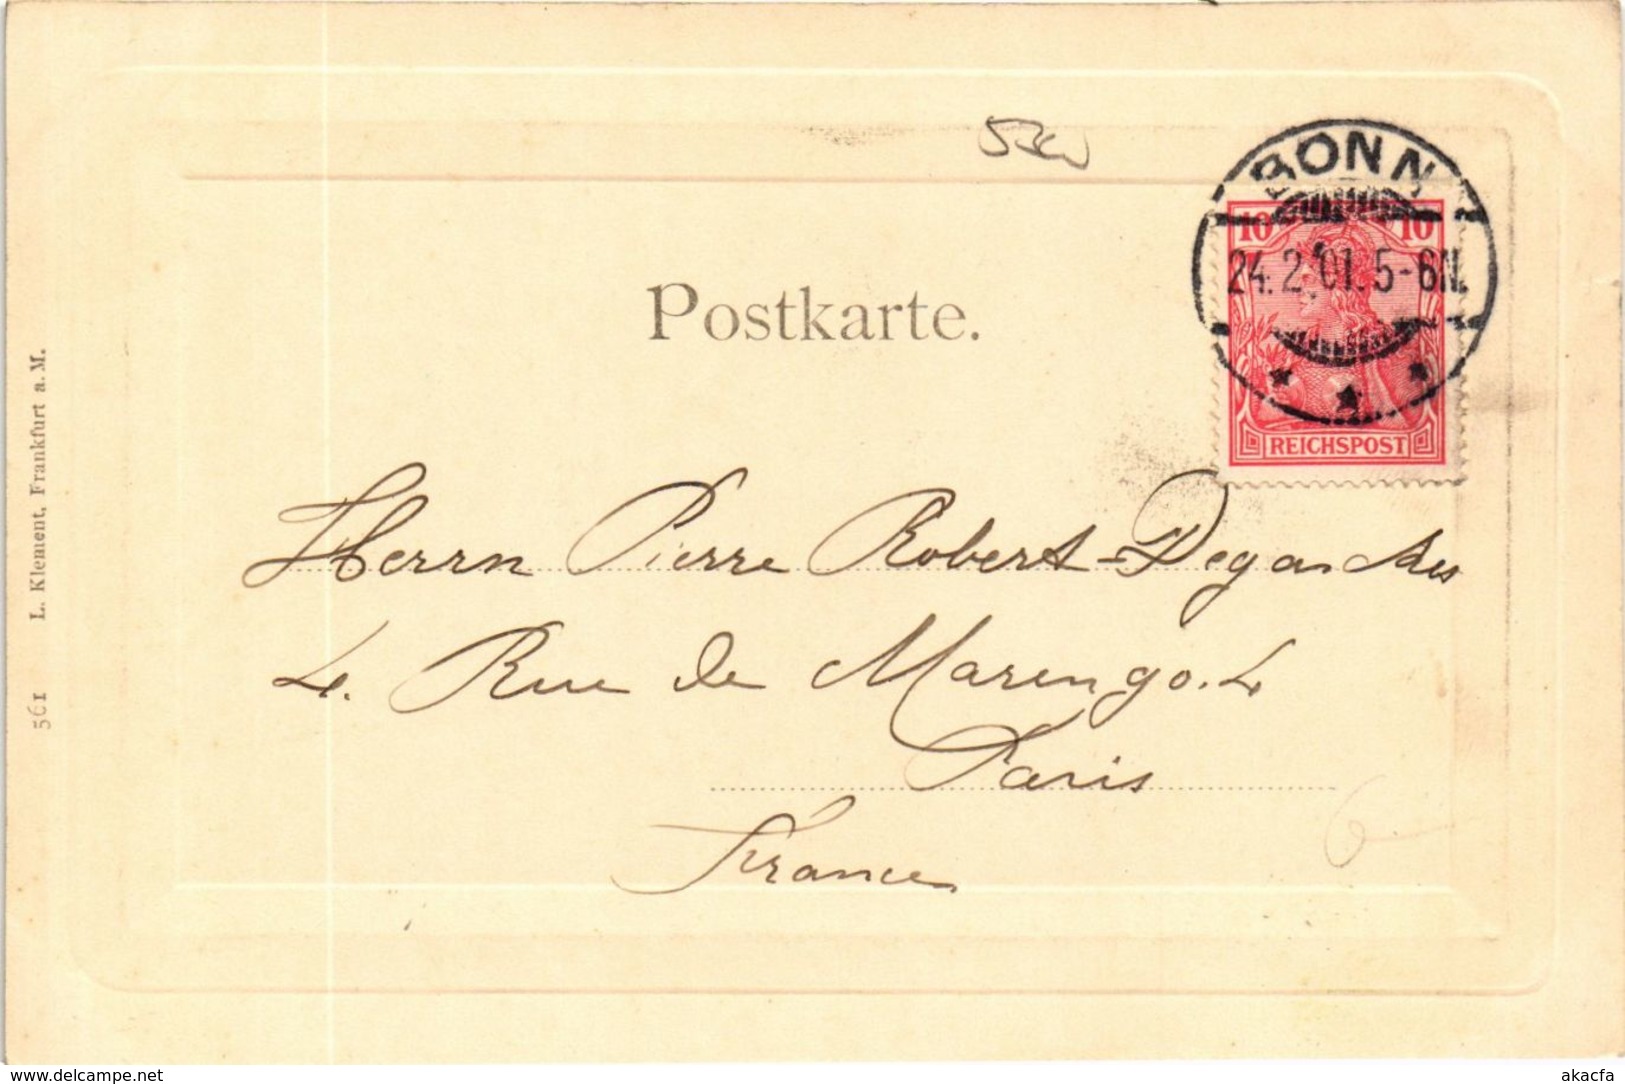 BONN
10 10
24.2.01.5-6N.
REICHSPOST
Postkarte.
Herrn Pierre Robert-Degasches
4. Rue de Marengo. 4
Paris
France
6
561 L. Klement, Frankfurt a. M.
www.delcampe.net
akacfa